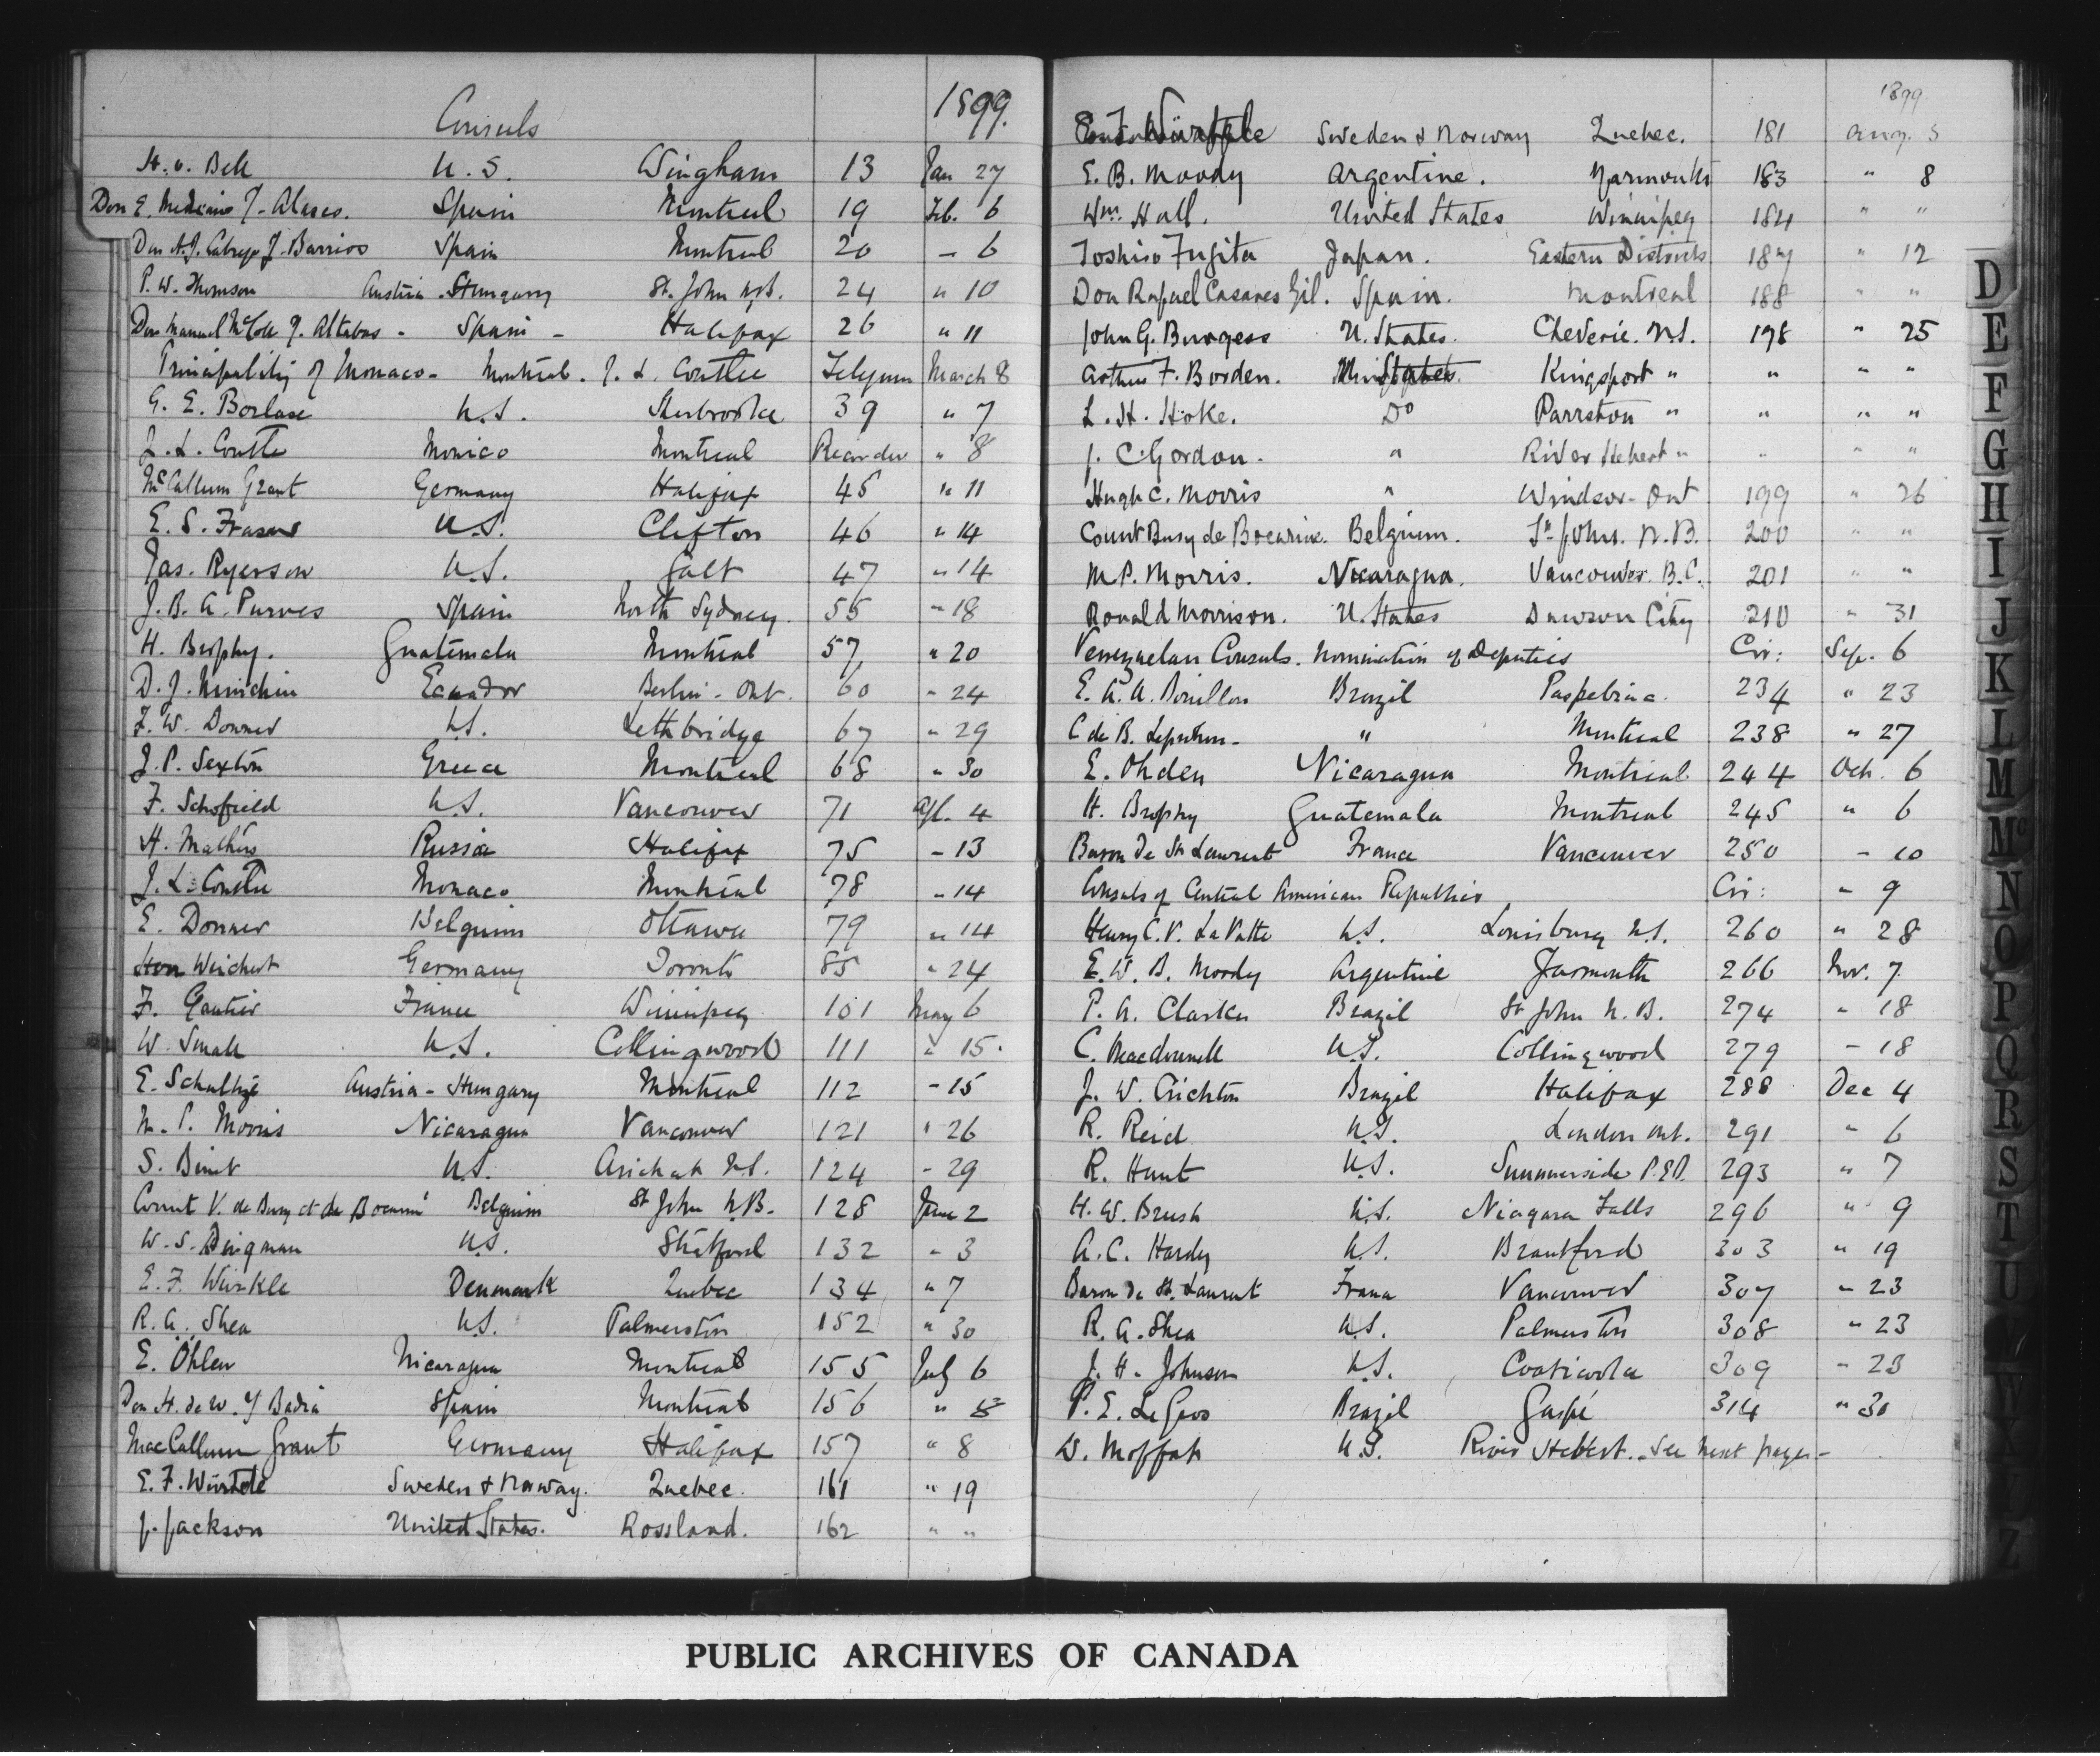 Consuls 1899.
H. v. Bell U.S. Wingham 13 Jan 27
Don E. Mediano y Alares. Spain Montreal 19 Feb. 6
Don A. J. Cabrejo y Barrios Spain Montreal 20 - 6
P. W. Thomson Austria-Hungary St. John N.B. 24 " 10
Don Manuel McColl y Altabas - Spain - Halifax 26 " 11
Principality of Monaco - Montreal. J. L. Coutlee Telegram March 8
G. E. Borlase U.S. Sherbrooke 39 " 7
J. L. Coutlee Monico Montreal Ricarder " 8
McCallum Grant Germany Halifax 45 " 11
E. S. Fraser U.S. Clifton 46 " 14
Jas. Ryerson U.S. Galt 47 " 14
J. B. A. Purves Spain North Sydney. 55 " 18
H. Brophy. Guatemala Montreal 57 " 20
D. J. Minichin Ecuador Berlin - Ont. 60 " 24
F. W. Downer U.S. Lethbridge 67 " 29
J. P. Sexton Greece Montreal 68 " 30
F. Schofield U.S. Vancouver 71 Apl. 4
H. Mathers Russia Halifax 75 - 13
J. L. Coutlee Monaco Montreal 78 " 14
E. Donner Belgium Ottawa 79 " 14
Weichert Germany Toronto 85 " 24
F. Gautier France Winnipeg 101 May 6
W. Small U.S. Collingwood 111 " 15.
E. Schultze Austria-Hungary Montreal 112 - 15
M. P. Morris Nicaragua Vancouver 121 " 26
S. Binet U.S. Arichat N.S. 124 - 29
Count V. de Busy et de Bocarmé Belgium St John N.B. 128 June 2
W. S. Dingman U.S. Stratford 132 " 3
E. F. Würtele Denmark Quebec 134 " 7
R. A. Shea U.S. Palmerston 152 " 30
E. Öhlen Nicaragua Montreal 155 July 6
Don H. de W. y Badia Spain Montreal 156 " 8
MacCallum Grant Germany Halifax 157 " 8
E. F. Würtele Sweden & Norway. Quebec. 161 " 19
J. Jackson United States. Rossland. 162 " "
1899.
Würtele Sweden & Norway Quebec. 181 Aug. 5
E. B. Moody Argentine. Yarmouth 183 " 8
Wm. Hall. United States Winnipeg 184 " "
Toshiro Fugita Japan. Eastern Districts 187 " 12
Don Rafael Casares Gil. Spain. Montreal 188 " "
John G. Burgess U. States. Cheverie. N.S. 198 " 25
Arthur F. Borden. States. Kingsport " " " "
L. H. Hoke. Do Parrston " " " "
J. C. Gordon. " River Hebert " " " "
Hugh C. Morris " Windsor - Ont 199 " 26
Count Busy de Bocarine. Belgium. St. Johns. N.B. 200 " "
M. P. Morris. Nicaragua. Vancouver. B.C. 201 " "
Ronald Morrison. U. States Dawson City 210 " 31
Venezuelan Consuls. Nomination of Deputies Cir: Sep. 6
E. A. A. Bouillon Brazil Paspebiac. 234 " 23
C de B. Leprohon - " Montreal 238 " 27
E. Ohden Nicaragua Montreal 244 Oct. 6
H. Brophy Guatemala Montreal 245 " 6
Baron de St. Laurent France Vancouver 250 - 10
Consuls of Central American Republics Cir: " 9
Henry C. V. LeVatte U.S. Louisburg N.S. 260 " 28
E. W. B. Moody Argentine Yarmouth 266 Nov. 7
P. A. Clarke Brazil St John N.B. 274 " 18
C. Macdonnell U.S. Collingwood 279 - 18
J. W. Crichton Brazil Halifax 288 Dec 4
R. Reid U.S. London Ont. 291 " 6
R. Hunt U.S. Summerside P.E.I. 293 " 7
H. W. Brush U.S. Niagara Falls 296 " 9
A. C. Hardy U.S. Brantford 303 " 19
Baron de St. Laurent France Vancouver 307 - 23
R. A. Shea U.S. Palmerston 308 " 23
J. H. Johnson U.S. Coaticooke 309 - 23
P. E. LeGros Brazil Gaspé 314 " 30
W. Moffat U.S. River Hebert. See next page -
D
E
F
G
H
I
J
K
L
M
Mc
N
O
P
Q
R
S
T
U
PUBLIC ARCHIVES OF CANADA